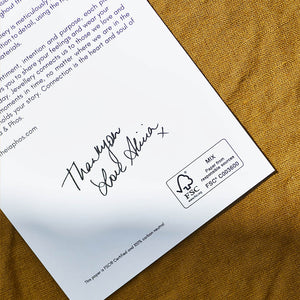 is meticulously
detail, using the
ntiment, intention and purpose, each
s you to share your feelings and wear your
day, jewellery connects us to those we love and
moments in time, no matter where we are in
and your story. Connection is the heart and soul of
& Phos.
Thankyou
Love Alicia x
MIX
Paper from
responsible sources
FSC® C003600
FSC
This paper is FSC® Certified and 100% carbon neutral